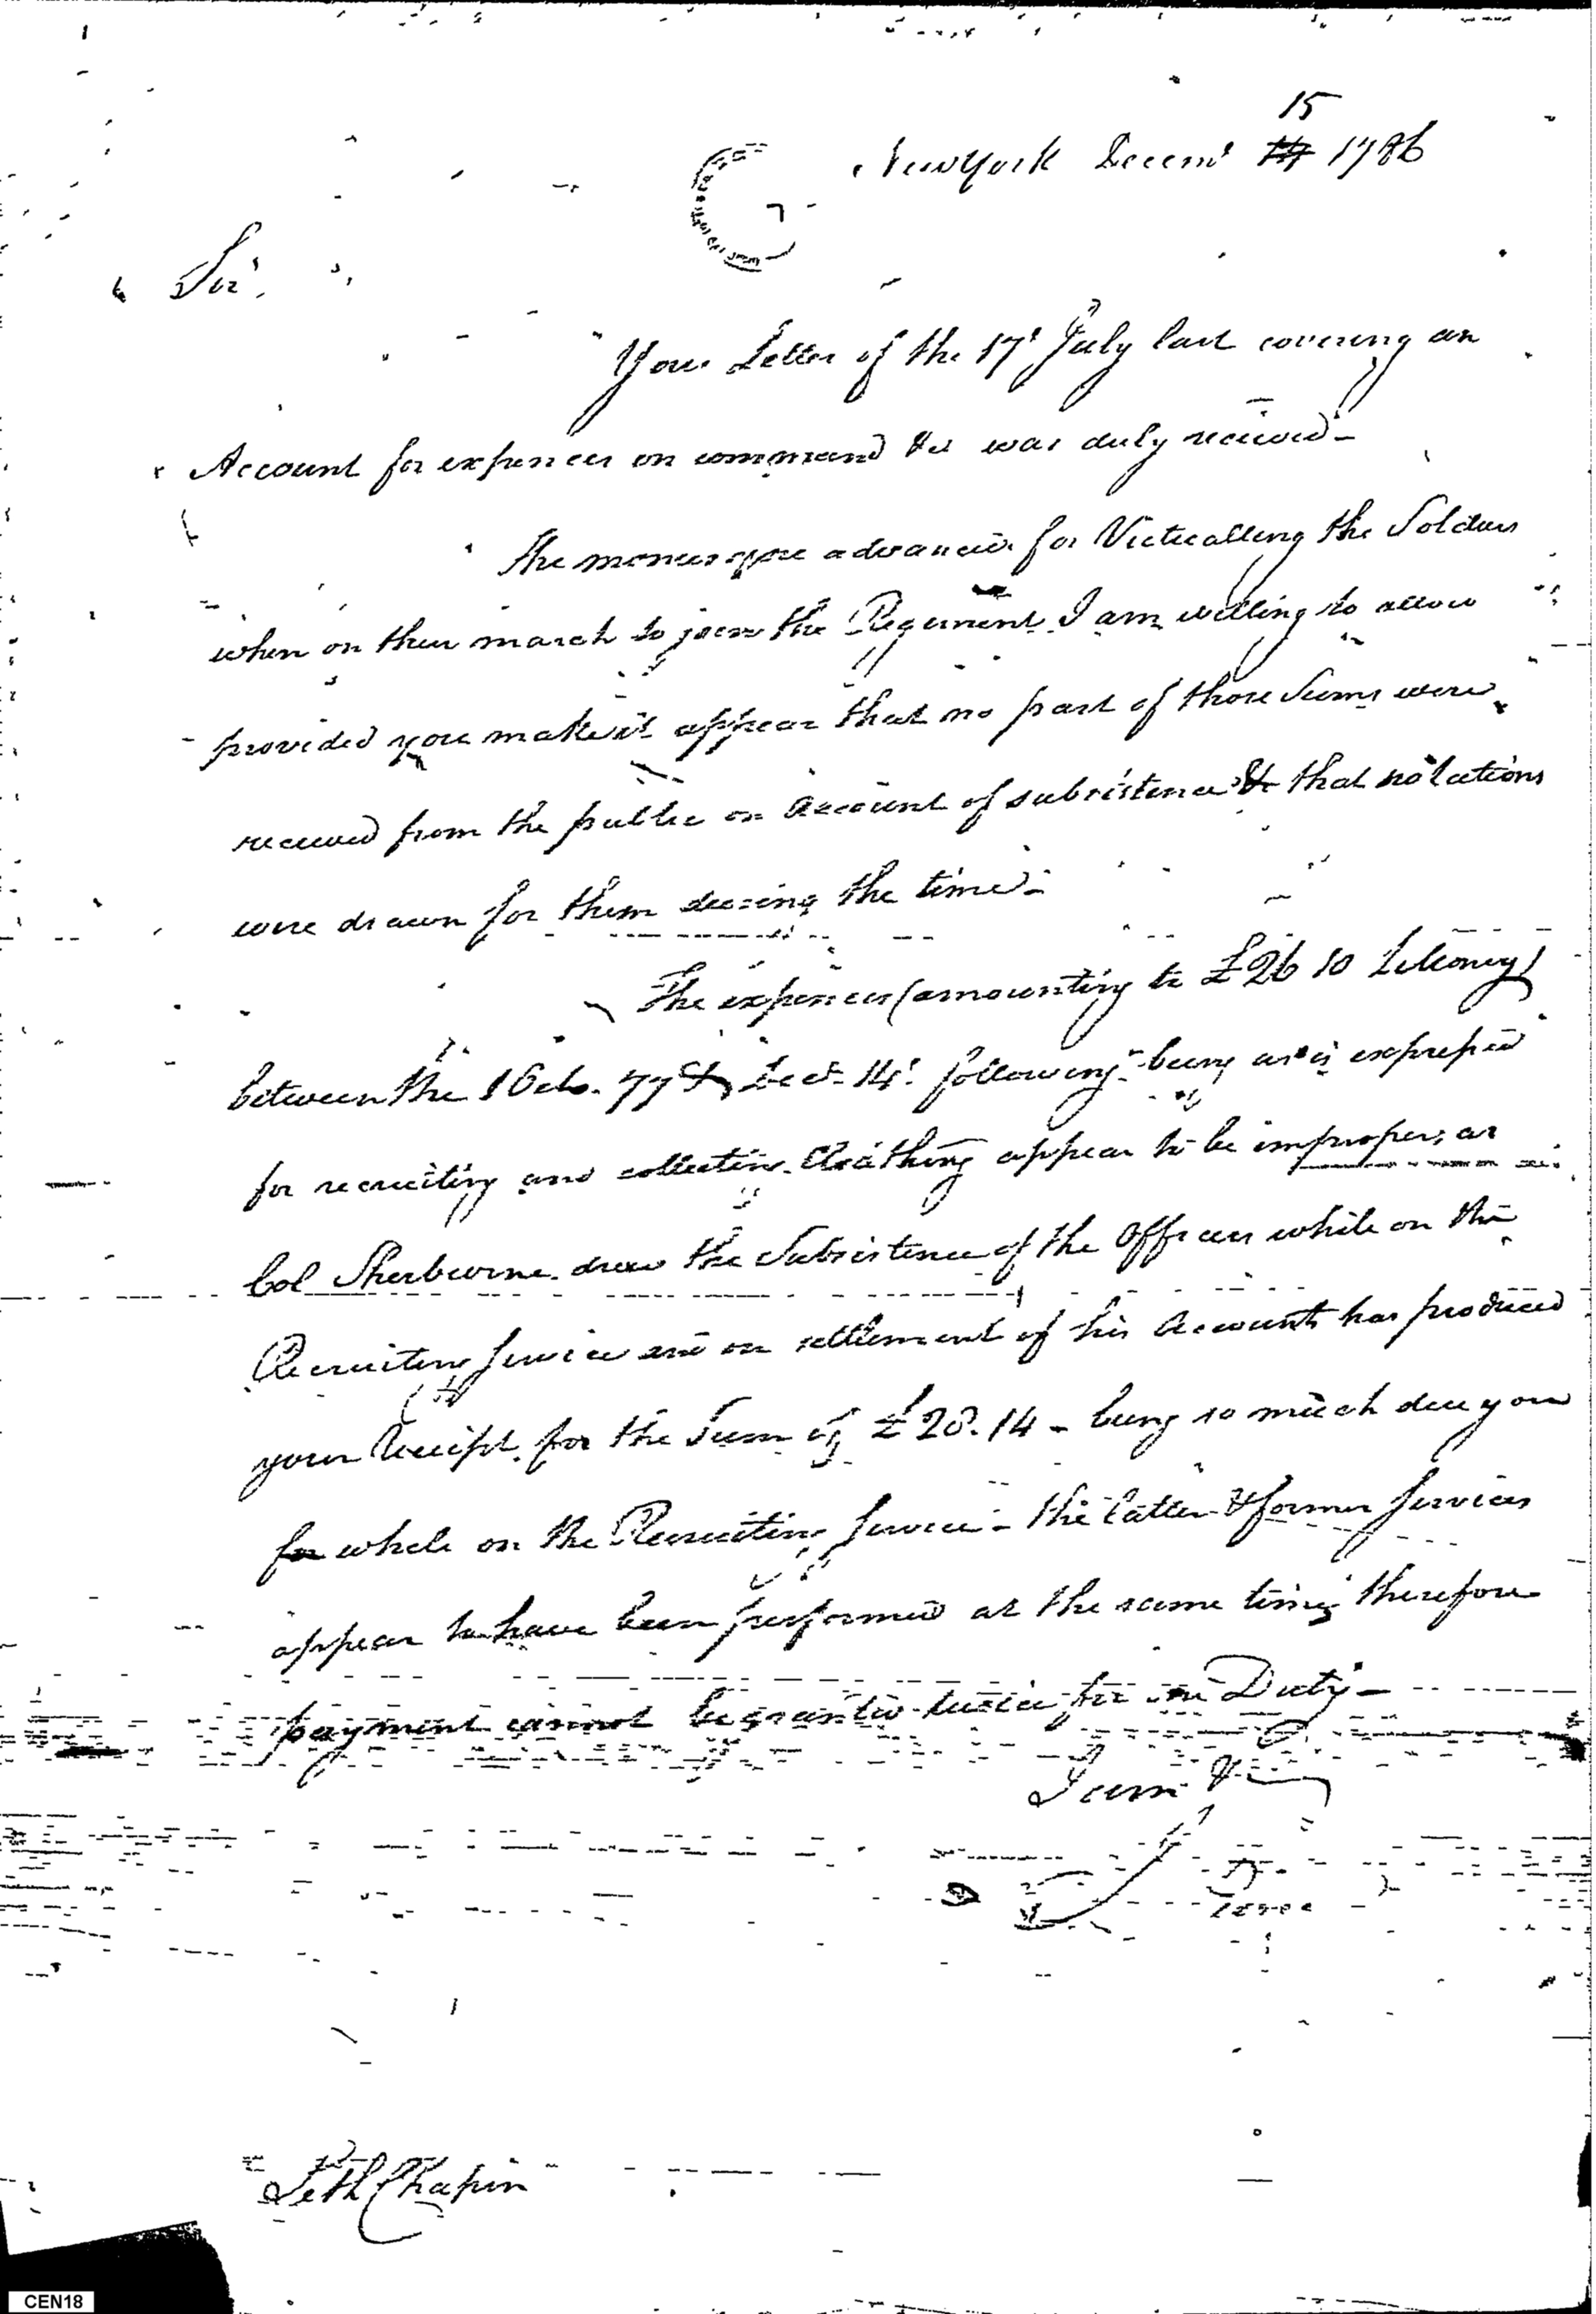 15
New York Decemr 14 1786
Sir,
Your Letter of the 17t July last covering an
Account for expences on command &c was duly received—
The monies you advanced for Victualling the Soldiers
when on their march to join the Regiment I am willing to allow
provided you make it appear that no part of those Sums were
received from the public on Account of subsistence & that no rations
were drawn for them during the time—
The expences (amounting to £26 10 L Money)
between the 1 Octo. 77 & Decr 14t following being as is expressed
for recruiting and collecting Cloathing appear to be improper, as
Col Sherburne drew the Subsistence of the Officers while on the
Recruiting Service and on settlement of his Accounts has produced
your Receipt for the Sum of £28.14 — being so much due you
for while on the Recruiting Service — the latter & former Services
appear to have been performed at the same time, therefore
payment cannot be granted twice for one Duty—
I am &
Seth Chapin
CEN18